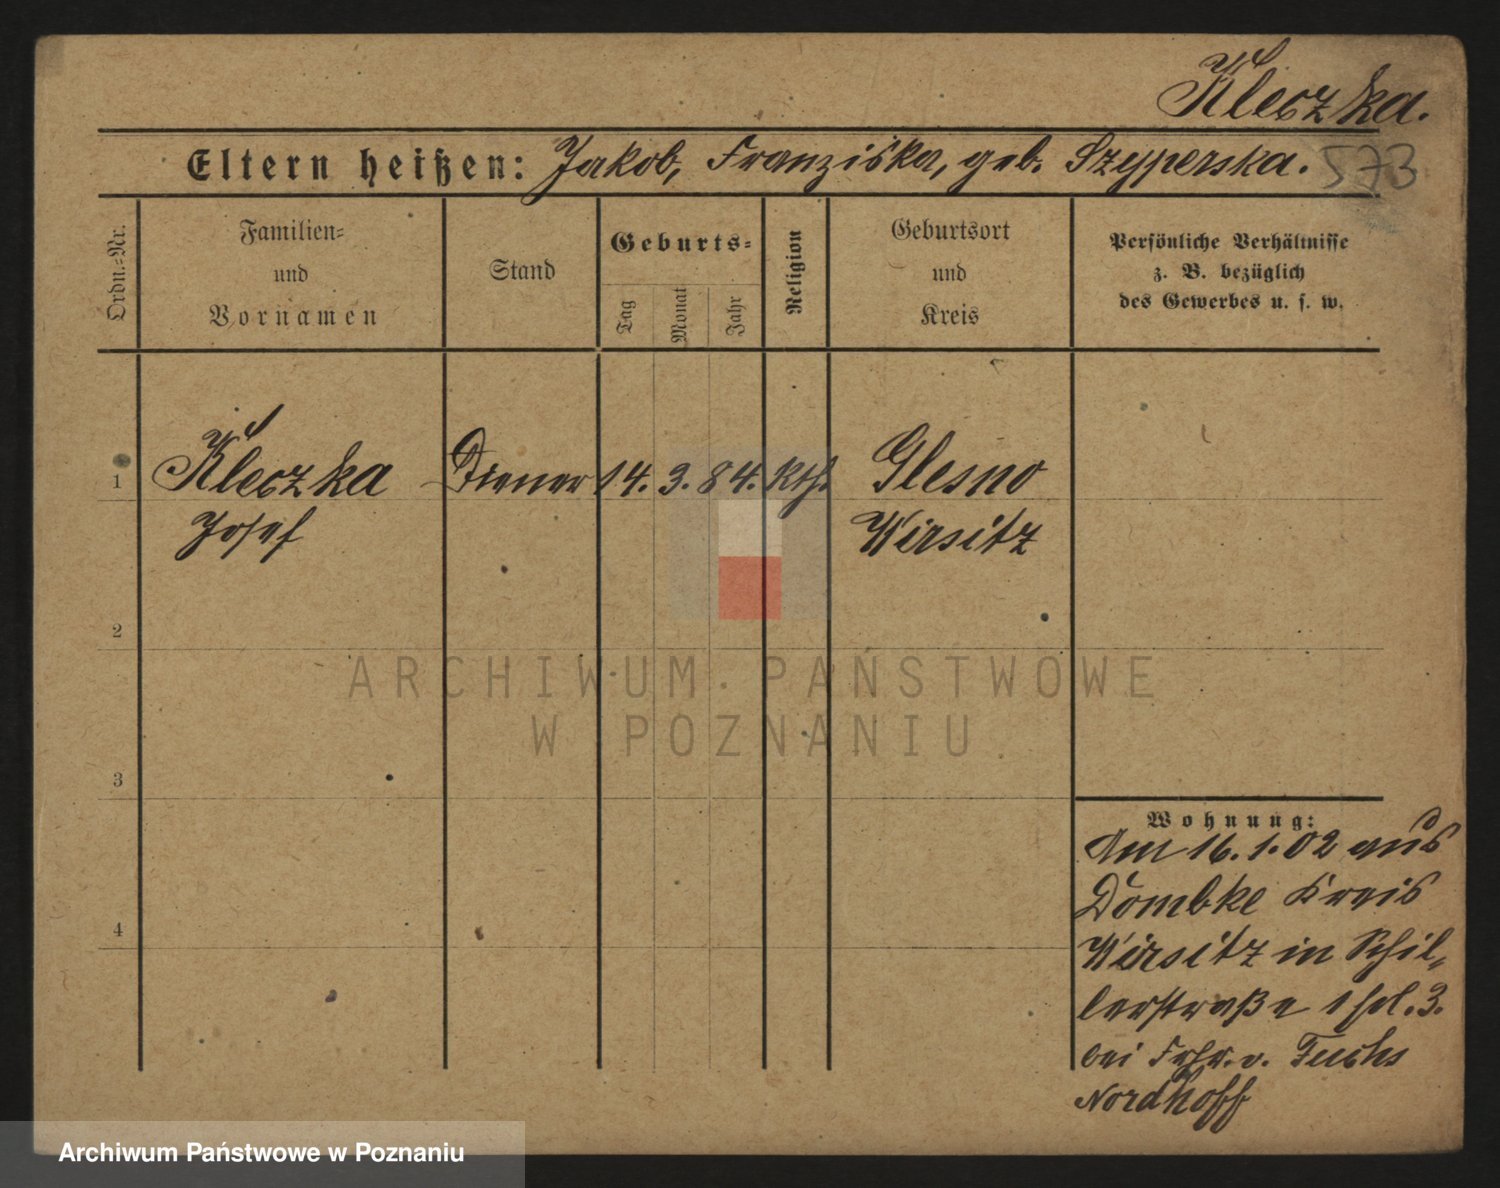 Kleczka.
Eltern heißen: Jakob, Franziska, geb. Szyperska. 573
Ordn.-Nr.
Familien-
und
Vornamen
Stand
Geburts-
Tag
Monat
Jahr
Religion
Geburtsort
und
Kreis
Persönliche Verhältnisse
z. B. bezüglich
des Gewerbes u. s. w.
1 Kleczka Diener 14. 3. 84. kth. Glesno
Josef Wirsitz
2
ARCHIWUM PAŃSTWOWE
W POZNANIU
3
Wohnung:
Am 16.1.02 aus
Dombke Kreis
4
Wirsitz in Schil-
lerstraße 1
bei Frhr. v. Fuchs
Nordhoff
Archiwum Państwowe w Poznaniu